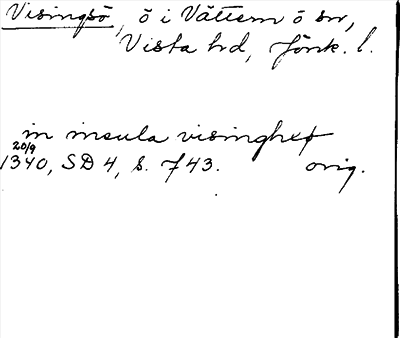 Visingsö, ö i Vättern ö sn,
Vista hd, Jönk. l.
in insula visinghxø
20/9
1340, SD 4, s. 743. orig.